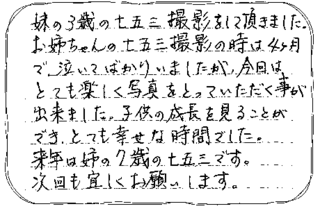 妹の3歳の七五三撮影をして頂きました。
お姉ちゃんの七五三撮影の時は4ヶ月
で泣いてばかりいましたが、今回は
とても楽しく写真をとっていただく事が
出来ました。子供の成長を見ることが
でき、とても幸せな時間でした。
来年は姉の7歳の七五三です。
次回も宜しくお願いします。